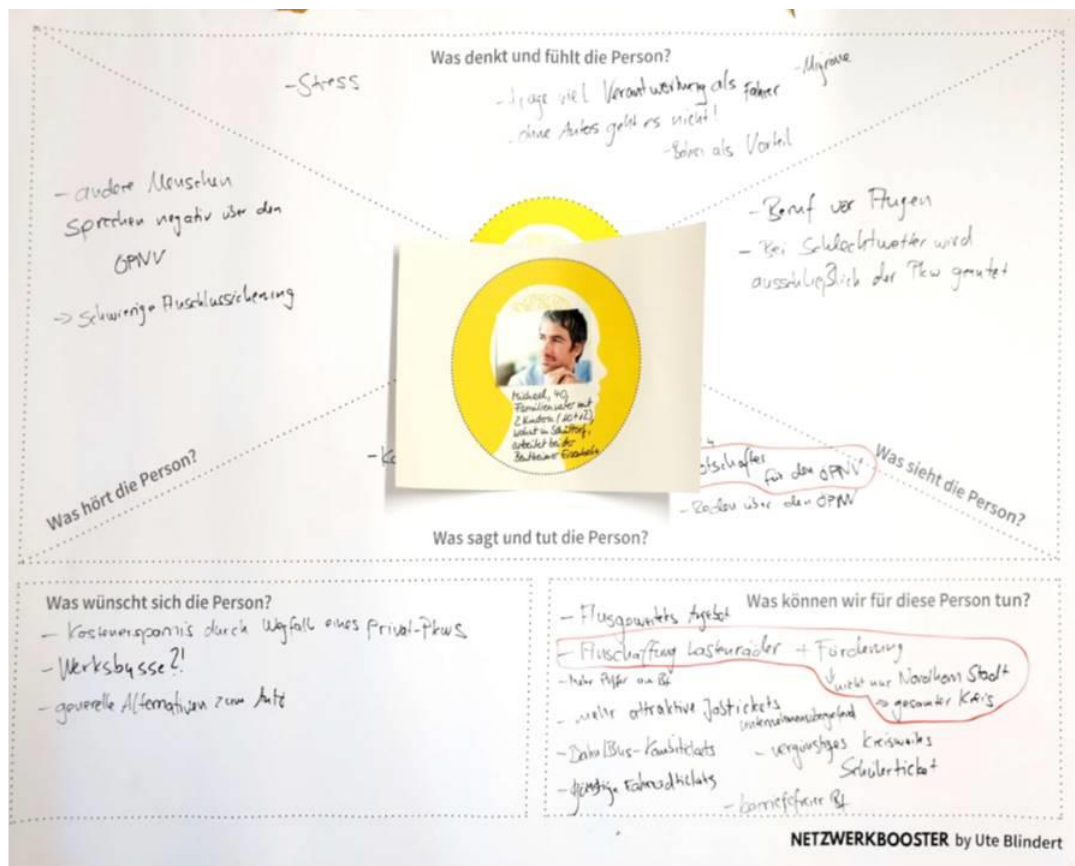 Was denkt und fühlt die Person?
- Stress
- trage viel Verantwortung als Fahrer
- Migräne
- ohne Autos geht es nicht!
- als Vorteil
- andere Menschen
sprechen negativ über den
ÖPNV
-> schwierige Anschlusssicherung
- Beruf vor Augen
- Bei Schlechtwetter wird
ausschließlich der Pkw genutzt
Michael, 40,
Familienvater mit
2 Kindern (10+12),
wohnt in Schüttorf,
arbeitet bei der
Bentheimer Eisenbahn
Was hört die Person?
für den ÖPNV
- Reden über den ÖPNV
Was sieht die Person?
Was sagt und tut die Person?
Was wünscht sich die Person?
- Kostenersparnis durch Wegfall eines Privat-Pkws
- Werksbusse?!
- generelle Alternativen zum Auto
Was können wir für diese Person tun?
- Angebot
- Anschaffung Lastenräder + Förderung
nicht nur Nordhorn Stadt
-> gesamter Kreis
- Mehr am Bf
- mehr attraktive Jobtickets
unternehmensübergreifend
- Bahn/Bus-Kombitickets
- vergünstigtes kreisweites
Schülerticket
- günstige Fahrradtickets
- barrierefreier Bf
NETZWERKBOOSTER by Ute Blindert